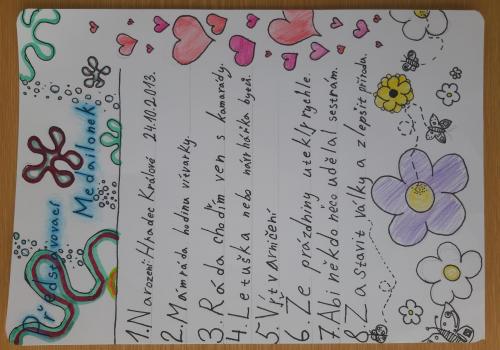 Představovací
Medailonek
1. Narození: Hradec Králové 24.10.2013.
2. Mám ráda hodinu vítvarky.
3. Ráda chodím ven s kamarády.
4. Letuška nebo návrhářka bytů.
5. Vrtvarničení
6. Že prázdniny utekly rychle.
7. Abi někdo něco udělal sestrám.
8. Zastavit války a zlepšit příroda.